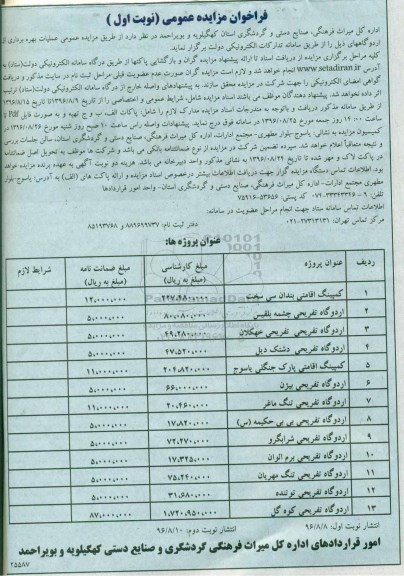 فراخوان مزایده عمومی (نوبت اول)
اداره کل میراث فرهنگی، صنایع دستی و گردشگری استان کهگیلویه و بویراحمد در نظر دارد از طریق مزایده عمومی عملیات بهره برداری از
اردوگاههای ذیل را از طریق سامانه تدارکات الکترونیکی دولت برگزار نماید.
کلیه مراحل برگزاری مزایده از دریافت اسناد تا ارائه پیشنهاد مزایده گران و بازگشایی پاکتها از طریق درگاه سامانه الکترونیکی دولت(ستاد) به
آدرس: www.setadiran.ir انجام خواهد شد و لازم است مزایده گران صورت عدم عضویت قبلی مراحل ثبت نام در سایت مذکور و دریافت
گواهی امضای الکترونیکی را جهت شرکت در مزایده محقق سازند. به پیشنهادهای واصله خارج از درگاه سامانه الکترونیکی دولت(ستاد) ترتیب
اثر داده نخواهد شد. پیشنهاد دهندگان موظف می باشند اسناد مزایده شامل، شرایط عمومی و اختصاصی را از تاریخ ۱۳۹۶/۸/۹ تا تاریخ ۱۳۹۶/۸/۱۵
از طریق سامانه مذکور دریافت و باتوجه به مندرجات اسناد مزایده مدارک لازم را شامل: پاکات الف، ب و ج تهیه و به صورت فایل Pdf تا
ساعت ۱۲:۰۰ روز جمعه مورخ ۱۳۹۶/۰۸/۲۵ در سامانه فوق درج نماید. پیشنهادات واصله راس ساعت ۱۰ صبح روز شنبه مورخ ۱۳۹۶/۰۸/۲۶ در
کمیسیون مزایده به نشانی: یاسوج-بلوار مطهری-مجتمع ادارات، اداره کل میراث فرهنگی، صنایع دستی و گردشگری استان، سالن جلسات بررسی
و نتیجه متعاقباً اعلام خواهد شد. سپرده تضمین شرکت در مزایده از نوع ضمانتنامه بانکی می باشد و شرکت ها موظف به تحویل اصل ضمانتنامه
در پاکت لاک و مهر شده تا تاریخ ۱۳۹۶/۰۸/۲۴ به نشانی مذکور واحد دبیرخانه می باشند. هزینه دو نوبت آگهی به عهده برنده مزایده خواهد
بود. اطلاعات تماس دستگاه مزایده گزار جهت دریافت اطلاعات بیشتر درخصوص اسناد مزایده و ارائه پاکت های (الف) به آدرس: یاسوج-بلوار
مطهری مجتمع ادارات- اداره کل میراث فرهنگی، صنایع دستی و گردشگری استان- واحد امور قراردادها
اطلاعات تماس سامانه ستاد جهت انجام مراحل عضویت در سامانه:
مرکز تماس تهران: ۲۷۳۱۳۱۳۱-۰۲۱ دفتر ثبت نام: ۸۸۹۶۹۷۳۷ و ۸۵۱۹۳۷۶۸
عنوان پروژه ها:
ردیف عنوان پروژه مبلغ کارشناسی (مبلغ به ریال) مبلغ ضمانت نامه (مبلغ به ریال) شرایط لازم
۱ کمپینگ اقامتی بندان سی سخت ۲۲۷،۴۸۰،۰۰۰ ۱۲،۰۰۰،۰۰۰
۲ اردوگاه تفریحی چشمه بلقیس ۸۰،۰۸۰،۰۰۰ ۵،۰۰۰،۰۰۰
۳ اردوگاه تفریحی تفریحی جهکلان ۴۹،۲۸۰،۰۰۰ ۵،۰۰۰،۰۰۰
۴ اردوگاه تفریحی دشتک دیل ۴۷،۵۲۰،۰۰۰ ۵،۰۰۰،۰۰۰
۵ کمپینگ اقامتی پارک جنگلی یاسوج ۲۰۴،۸۲۰،۰۰۰ ۱۱،۰۰۰،۰۰۰
۶ اردوگاه تفریحی بیژن ۶۶،۰۰۰،۰۰۰ ۵،۰۰۰،۰۰۰
۷ اردوگاه تفریحی تنگ ماغر ۲۰،۴۶۰،۰۰۰ ۱۱،۰۰۰،۰۰۰
۸ اردوگاه تفریحی بی بی حکیمه (س) ۱۷،۸۲۰،۰۰۰ ۵،۰۰۰،۰۰۰
۹ اردوگاه تفریحی شرابگرو ۷۲،۲۷۰،۰۰۰ ۵،۰۰۰،۰۰۰
۱۰ اردوگاه تفریحی برم الوان ۱۷،۳۲۵،۰۰۰ ۵،۰۰۰،۰۰۰
۱۱ اردوگاه تفریحی تنگ مهریان ۷۵،۲۴۰،۰۰۰ ۵،۰۰۰،۰۰۰
۱۲ اردوگاه تفریحی توتنده ۳۱،۶۸۰،۰۰۰ ۵،۰۰۰،۰۰۰
۱۳ اردوگاه تفریحی کوه گل ۱،۷۲۰،۹۵۰،۰۰۰ ۸۷،۰۰۰،۰۰۰
انتشار نوبت اول: ۹۶/۸/۸ انتشار نوبت دوم: ۹۶/۸/۱۰
امور قراردادهای اداره کل میراث فرهنگی گردشگری و صنایع دستی کهگیلویه و بویراحمد
۲۵۵۸۷